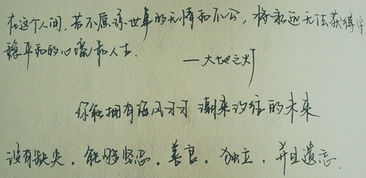 在这个人间，若不原谅世事的无情和不公，将永远无法获得
稳平和的心境和人生。
——大地之灯
你能拥有海风习习 潮来汐往的未来
没有缺失，能够坚忍，善良，独立，并且遗忘。